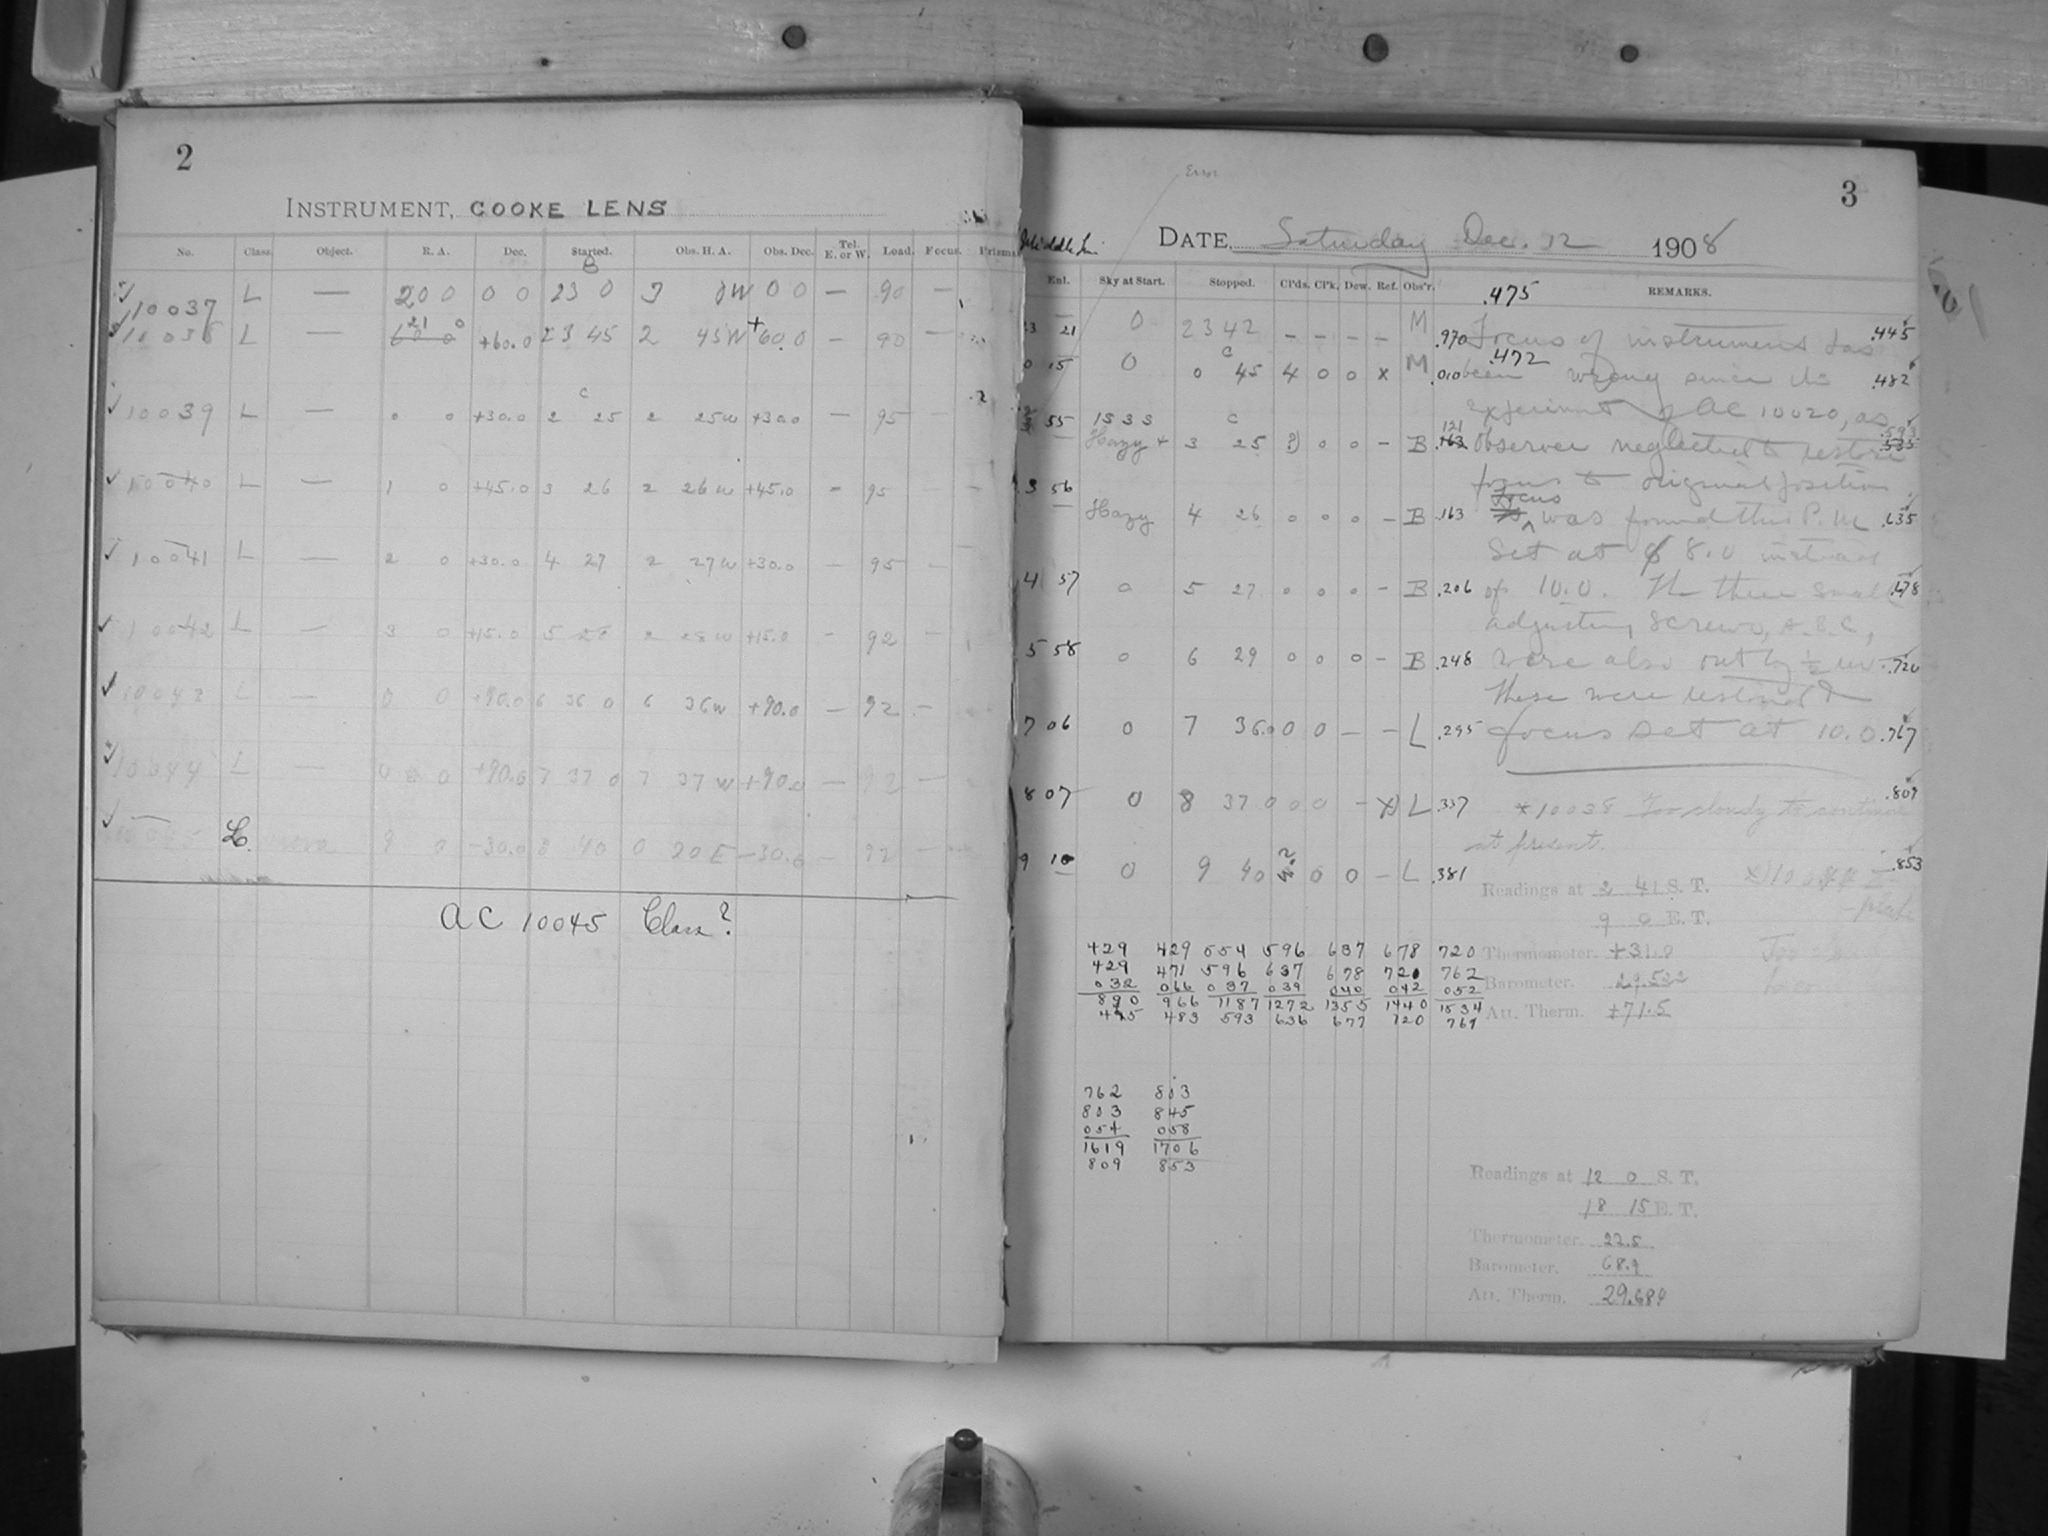 2
INSTRUMENT, COOKE LENS
No. Class Object. R. A. Dec. Started. Obs. H. A. Obs. Dec. Tel. E. or W. Load. Focus. Prisms
10037 L — 20 0 0 0 23 0 0 0 — 90 —
10038 L — 21 0 +60.0 23 45 2 45W +60.0 — 90 —
10039 L — 0 0 +30.0 2 25 2 25W +30.0 — 95 —
10040 L — 1 0 +45.0 3 26 2 26W +45.0 — 95 —
10041 L — 2 0 +30.0 4 27 2 27W +30.0 — 95 —
10042 L — 3 0 +15.0 5 28 2 28W +15.0 — 92 —
10043 L — 0 0 +90.0 6 36 0 6 36W +90.0 — 92 —
10044 L — 0 0 +90.0 7 37 0 7 37W +90.0 — 92 —
10045 L. 8 0 -30.0 8 40 0 20E -30.0 — 92 —
AC 10045 Class?
Error
3
DATE, Saturday Dec. 12 1908
Enl. Sky at Start. Stopped. Cl'ds. Cl'k. Dew. Ref. Obs'r. .475 REMARKS.
23 21 0 23 42 – – – – M .970 Focus of instrument has .445
0 15 0 0 45 4 0 0 x M .010 been wrong since the .482
.472
experiment of AC 10020, as
55 1533 Hazy + 3 25 0 0 – B 121 .162 observer neglected to restore .593 .535
focus to original position.
3 56 Hazy 4 26 0 0 0 – B .163 Focus was found this P.M. .635
set at 8.0 instead
4 57 0 5 27 0 0 0 – B .206 of 10.0. The three small .678
adjusting screws, A.B.C,
5 58 0 6 29 0 0 0 – B .248 were also out by ½ .720
These were restored &
7 06 0 7 36.0 0 0 — – L .295 focus set at 10.0 .767
8 07 0 8 37 0 0 0 – x) L .337 *10038 Too cloudy to continue .809
at present.
9 10 0 9 40 0 0 – L .381 .853
Readings at 2 41 S. T.
9 0 E. T.
Thermometer. +31.0
Barometer. 29.532
Att. Therm. +71.5
429 429 554 596 637 678 720
429 471 596 637 678 720 762
032 066 037 039 040 042 052
890 966 1187 1272 1355 1440 1534
445 483 593 636 677 720 767
762 803
803 845
054 058
1619 1706
809 853
Readings at 12 0 S. T.
18 15 E. T.
Thermometer. 22.5
Barometer. 68.9
Att. Therm. 29.684